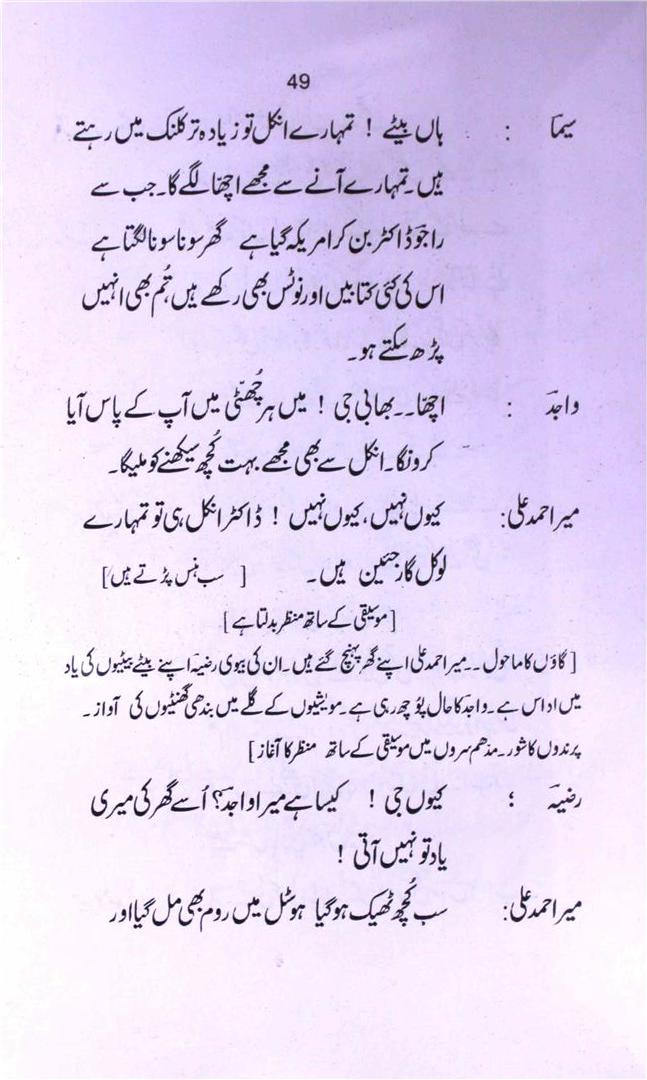 49
سیما : ہاں بیٹے ! تمہارے انکل تو زیادہ تر کلنک میں رہتے
ہیں۔ تمہارے آنے سے مجھے اچھّا لگے گا۔ جب سے
راجو ڈاکٹر بن کر امریکہ گیا ہے گھر سونا سونا لگتا ہے
اس کی کئی کتابیں اور نوٹس بھی رکھے ہیں، تُم بھی انہیں
پڑھ سکتے ہو۔
واجد : اچھّا۔۔ بھابی جی ! میں ہر چُھٹّی میں آپ کے پاس آیا
کرونگا۔ انکل سے بھی مجھے بہت کُچھ سیکھنے کو ملیگا۔
میر احمد علی: کیوں نہیں، کیوں نہیں ! ڈاکٹر انکل ہی تو تمہارے
لوکل گارجئین ہیں۔ [ سب ہنس پڑتے ہیں]
[موسیقی کے ساتھ منظر بدلتا ہے]
[ گاؤں کا ماحول۔۔ میر احمد علی اپنے گھر پہنچ گئے ہیں۔ ان کی بیوی رضیہ اپنے بیٹے بیٹیوں کی یاد
میں اداس ہے۔ واجد کا حال پُوچھ رہی ہے۔ مویشیوں کے گلے میں بندھی گھنٹیوں کی آواز۔
پرندوں کا شور۔ مدھم سروں میں موسیقی کے ساتھ منظر کا آغاز]
رضیہ ؛ کیوں جی ! کیسا ہے میرا واجد؟ اُسے گھر کی میری
یاد تو نہیں آتی !
میر احمد علی: سب کُچھ ٹھیک ہو گیا ہوسٹل میں روم بھی مل گیا اور